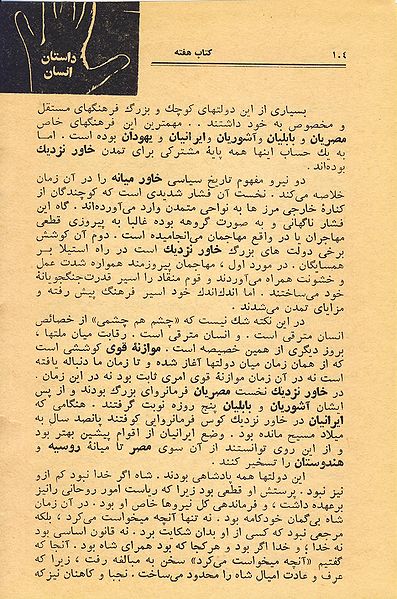 داستان
انسان
کتاب هفته
۱۰۴
بسیاری از این دولتهای کوچك و بزرگ فرهنگهای مستقل
و مخصوص به خود داشتند . . . مهمترین این فرهنگهای خاص
مصریان و بابلیان وآشوریان وایرانیان و یهودان بوده است . اما
به یك حساب اینها همه پایهٔ مشترکی برای تمدن خاور نزدیك
بوده‌اند.
دو نیرو مفهوم تاریخ سیاسی خاور میانه را در آن زمان
خلاصه می‌کند . نخست آن فشار شدیدی است که کوچندگان از
کنارهٔ خارجی مرز ها به نواحی متمدن وارد می‌آورده‌اند. گاه این
فشار ناگهانی و به صورت گروهه بوده غالبا به پیروزی قطعی
مهاجران یا در واقع مهاجمان می‌انجامیده است . دوم آن کوشش
برخی دولت های بزرگ خاور نزدیك است در راه استیلا بر
همسایگان . در مورد اول ، مهاجمان پیروزمند همواره شدت عمل
و خشونت همراه می‌آوردند و قوم منقاد را اسیر قدرت‌جنگجویانهٔ
خود می‌ساختند . اما اندك‌اندك خود اسیر فرهنگ پیش رفته و
مزایای تمدن می‌شدند.
در این نکته شك نیست که «چشم هم چشمی» از خصائص
انسان مترقی است . و انسان مترقی است . رقابت میان ملتها ،
بروز دیگری از همین خصیصه است . موازنهٔ قوی کوششی است
که از همان زمان میان دولتها آغاز شده و تا زمان ما دنباله یافته
است نه در آن زمان موازنهٔ قوی امری ثابت بود نه در این زمان .
در خاور نزدیك نخست مصریان فرمانروای بزرگ بودند و از پس
ایشان آشوریان و بابلیان پنج روزه نوبت گرفتند . هنگامی که
ایرانیان در خاور نزدیك کوس فرمانروایی کوفتند پانصد سال به
میلاد مسیح مانده بود . وضع ایرانیان از اقوام پیشین بهتر بود
و از این روی توانستند از آن سوی مصر تا میانهٔ روسیه و
هندوستان را تسخیر کنند .
این دولتها همه پادشاهی بودند. شاه اگر خدا نبود کم ازو
نیز نبود. پرستش او قطعی بود زیرا که ریاست امور روحانی رانیز
برعهده داشت ، و فرماندهی کل نیروها خاص او بود . در آن زمان
شاه بی‌گمان خودکامه بود . نه تنها آنچه میخواست می‌کرد ، بلکه
مرجعی نبود که کسی از او بدان شکایت برد . نه قانون اساسی بود
نه خدا ؛ و خدا اگر بود و هرکجا که بود همرای شاه بود . آنجا که
گفتیم «آنچه میخواست می‌کرد» سخن به مبالغه رفت ، زیرا که
عرف و عادت امیال شاه را محدود می‌ساخت . نجبا و کاهنان نیز که